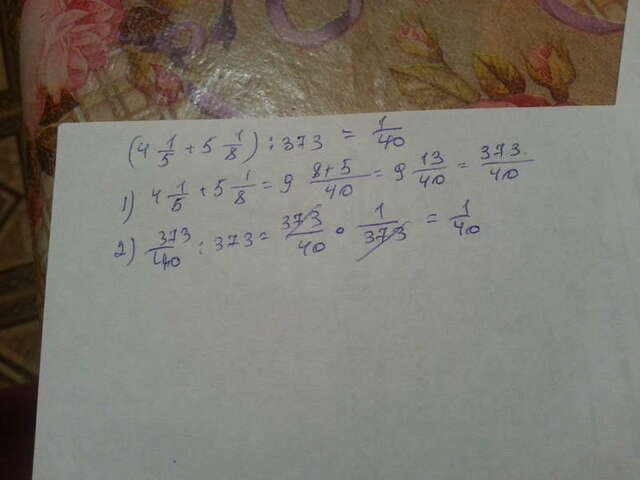 (4 1/5 + 5 1/8) : 373 = 1/40
1) 4 1/5 + 5 1/8 = 9 8+5/40 = 9 13/40 = 373/40
2) 373/40 : 373 = 373/40 · 1/373 = 1/40